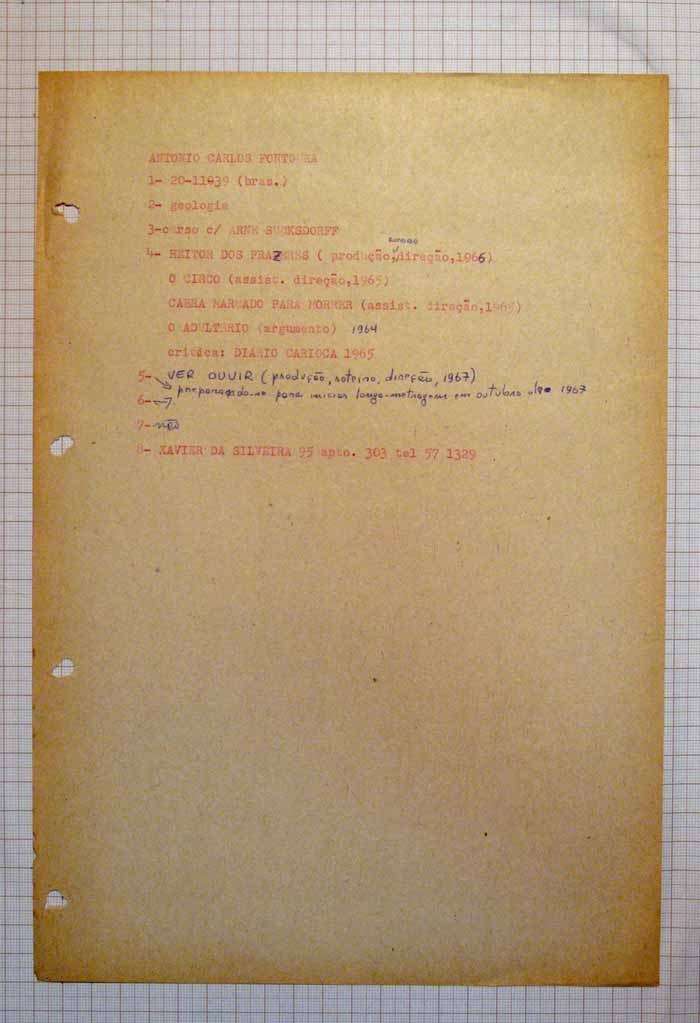 ANTONIO CARLOS FONTOURA
1- 20-11939 (bras.)
2- geologia
3-curso c/ ARNE SUCKSDORFF
4- HEITOR DOS PRAZERES ( produção, direção,1966)
O CIRCO (assist. direção,1965)
CABRA MARCADO PARA MORRER (assist. direção,1965)
O ADULTÉRIO (argumento) 1964
critica: DIARIO CARIOCA 1965
5- VER OUVIR (produção, roteiro, direção, 1967)
preparando-se para iniciar longa-metragem em outubro de 1967
6-
7- não
8- XAVIER DA SILVEIRA 95 apto. 303 tel 57 1329